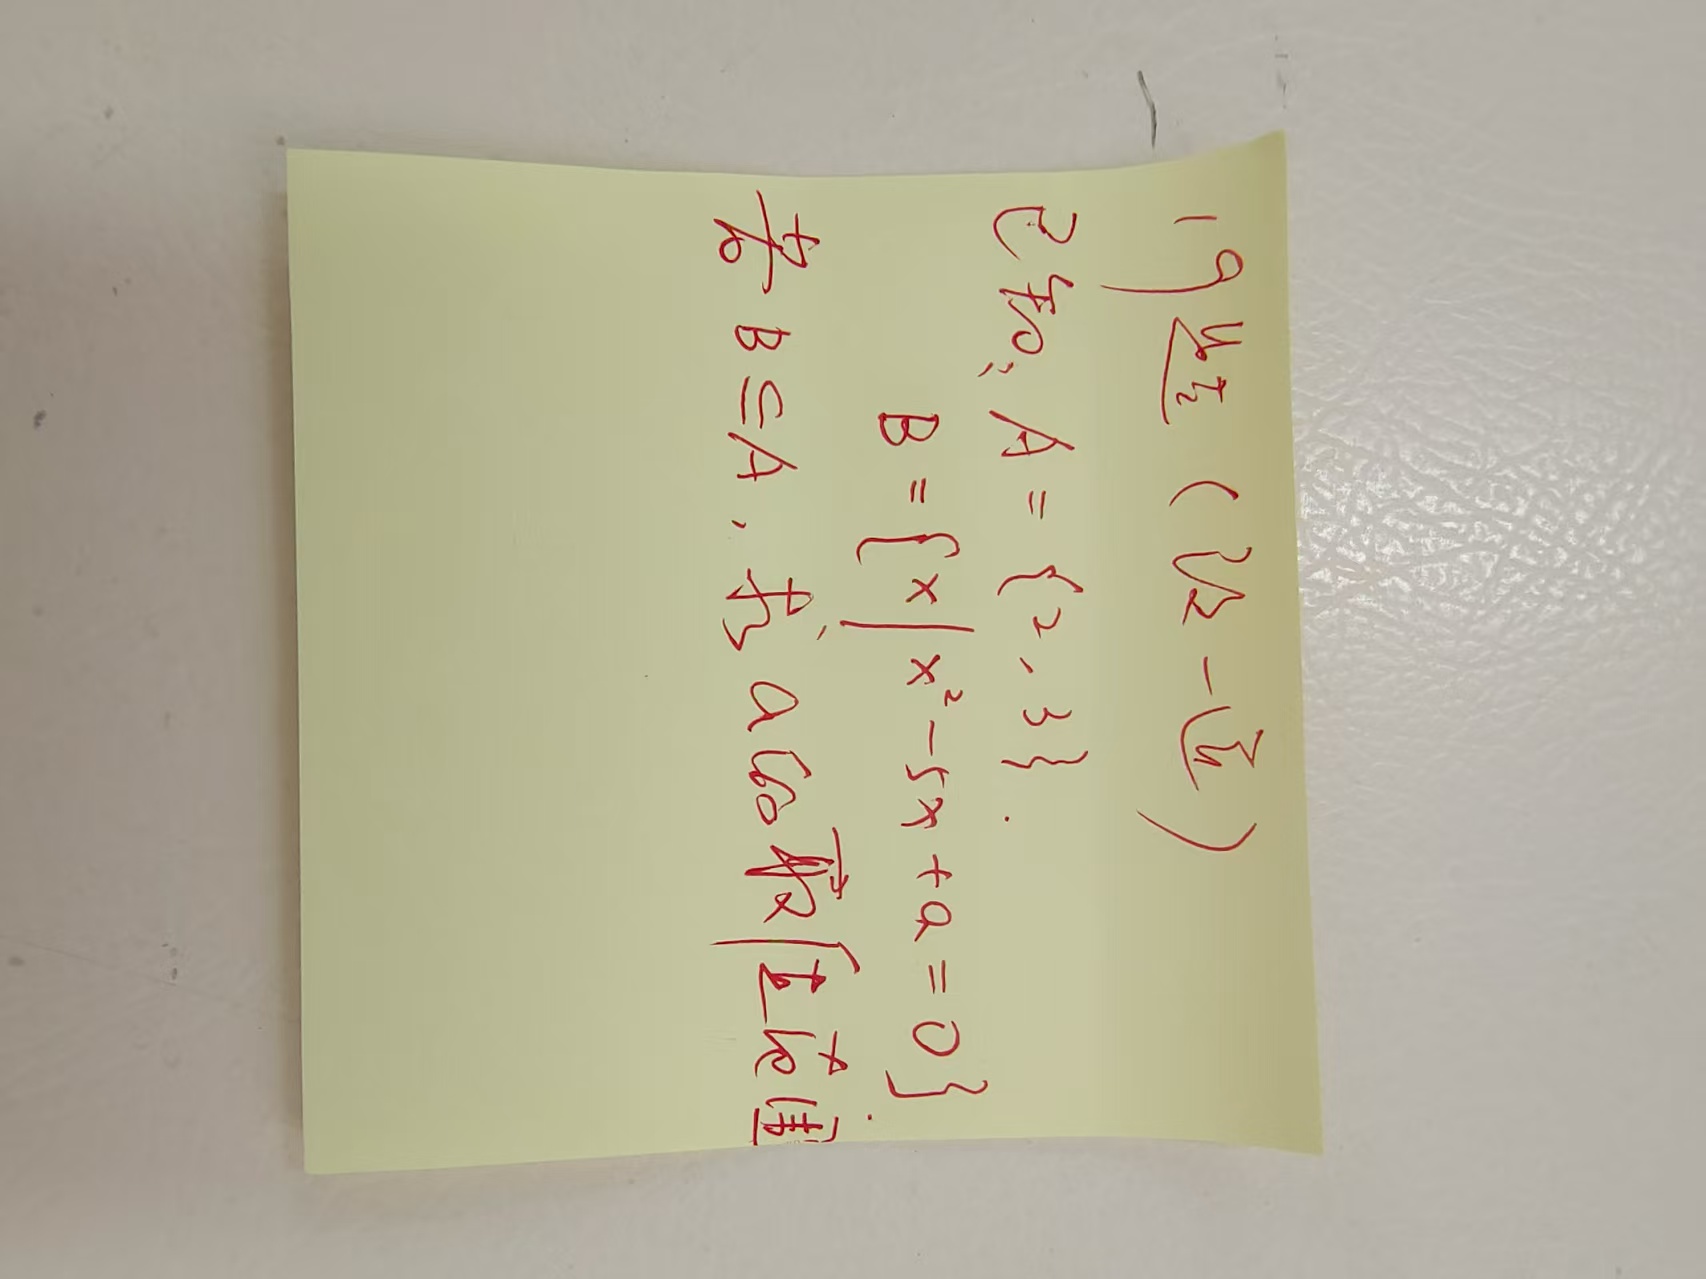 19题(改一道)
已知: A = {2, 3}.
B = {x|x²-5x+a=0}.
若B⊆A, 求a的取值范围